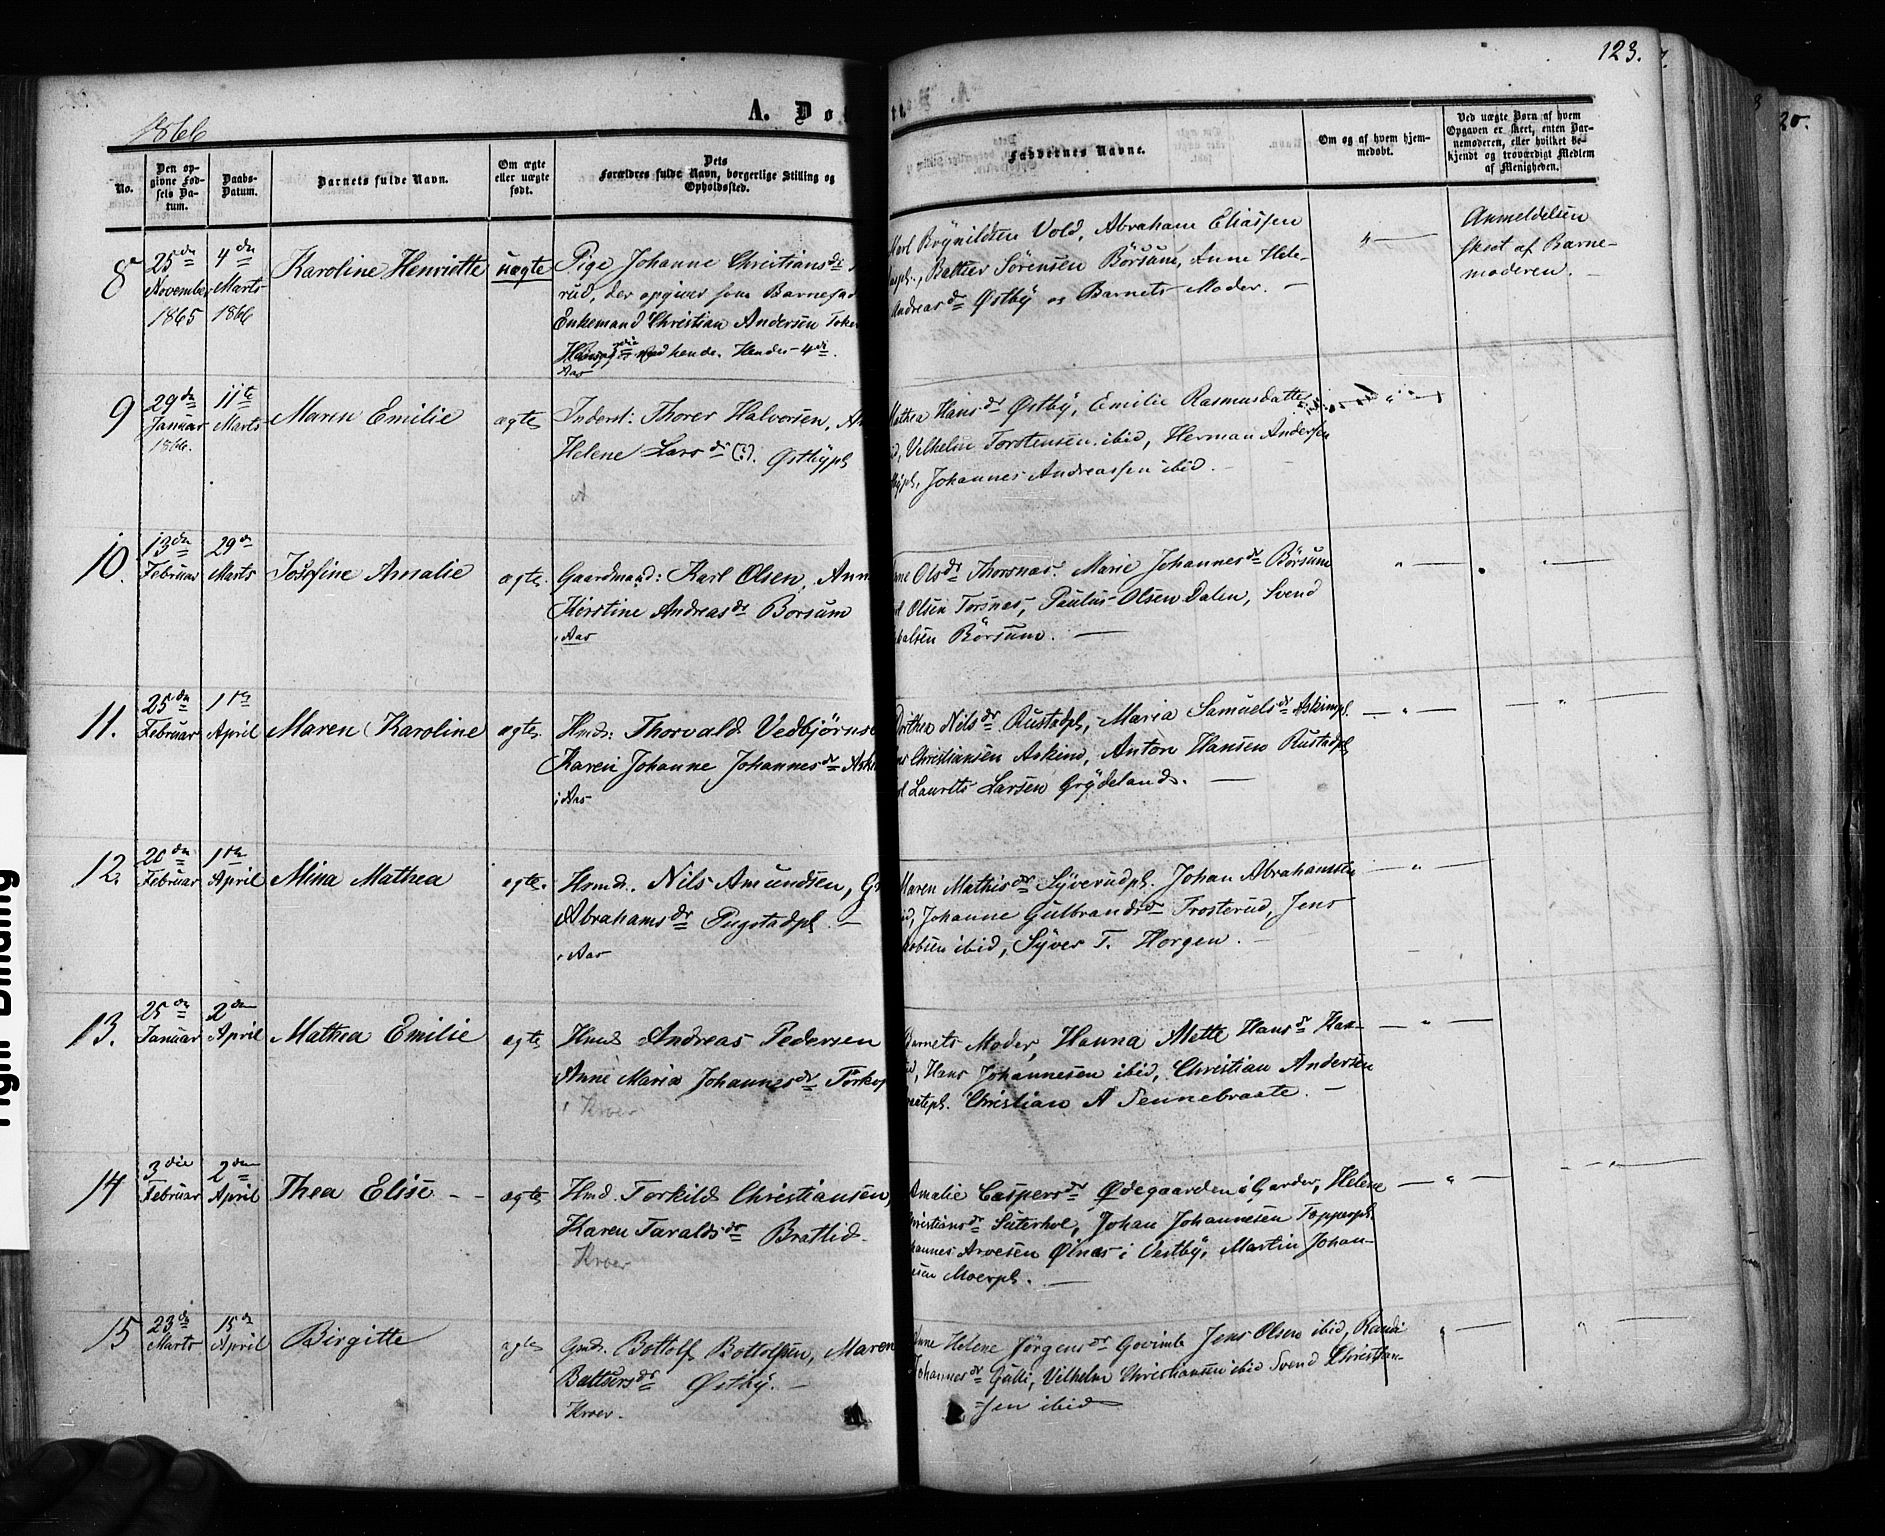 123.
1866
A. Dø
No.
Den op-
givne Fød-
sels Da-
tum.
Daabs-
Datum.
Barnets fulde Navn.
Om ægte
eller uægte
født.
Dets
Forældres fulde Navn, borgerlige Stilling og
Opholdssted.
Faddernes Navne.
Om og af hvem hjem-
medøbt.
Ved uægte Børn af hvem
Opgaven er skeet, enten Bar-
nemoderen, eller hvilket be-
kjendt og troværdigt Medlem
af Menigheden.
8
25de
November
1865
4de
Marts
1866
Karoline Henriette
uægte
Pige Johanne Christiansdr
rud, der opgiver som Barnefad
Enkemand Christian Andersen
med hende. Hendes 4de
Aas
Brynildsen Vold, Abraham Eliassen
Baltser Sørensen Børsum, Anne Hele-
Andreasdr Østby og Barnets Moder. —
Anmeldelsen
skeet af Barne-
moderen. —
9
29de
Januar
1866.
11te
Marts
Maren Emilie
ægte
Inderst: Thorer Halvorsen,
Helene Larsdr (?). Østbypl
Mathea Hansdr Østby, Emilie Rasmusdatter
Vilhelm Torstensen ibid, Herman Andersen
Johannes Andreassen ibid. —
10.
13de
Februar
29de
Marts
Josefine Amalie
ægte.
Gaardmand: Karl Olsen, Anne
Kirstine Andreasdr Børsum
i Aas
Olsdr Thorsnæs. Marie Johannesdr Børsum
Olsen Torsnæs, Paulus Olsen Dalen, Svend
Børsum. —
11.
25de
Februar
1ste
April
Maren Karoline
ægte.
Hmd: Thorvald Vedbjørnse
Karen Johanne Johannesdr Aski
i Aas
Dorthea Nilsdr Rustadpl, Maria Samuelsdr Askimpl.
Christiansen Askim, Anton Hansen Rustadpl
Laurits Larsen Grydeland. —
12.
20de
Februar
1ste
April
Mina Mathea
ægte.
Hsmd. Nils Amundsen,
Abrahamsdr Pugstadpl. —
i Aas
Maren Mathisdr Syverudpl. Johan Abrahamsen
Johanne Gulbrandsdr Frosterud, Jens
ibid, Syver T. Horgen. —
13.
25de
Januar
2den
April
Mathea Emilie
ægte
Hmd Andreas Pedersen
Anne Maria Johannesdr
i Kroer
Barnets Moder, Hanna Mette Hansdr
Hans Johannesen ibid, Christian Andersen
Christian A Sennebraate. —
14
3die
Februar
2den
April
Thea Elise - -
ægte
Hmd. Torkild Christiansen,
Karen Taraldsdr Brattlid.
Kroer
Amalie Caspersdr Ødegaarden i Garder, Helene
Christiansdr Suterhol, Johan Johannesen Topperpl.
Arvesen Ølnæs i Vestby, Martin Johan-
sen Moerpl. —
15
23de
Marts
15de
April
Birgitte
ægte
Gmd. Bottolf Bottolfsen, Maren
Baltsersdr Østby. —
Kroer.
Anne Helene Jørgensdr Govimb Jens Olsen ibid, Randi
Johannesdr Galli, Vilhelm Christiansen ibid Svend Christian-
sen ibid